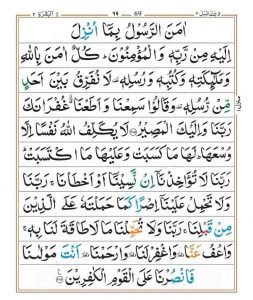 ٦٩ 69
اٰمَنَ الرَّسُوْلُ بِمَاۤ اُنْزِلَ
اِلَيْهِ مِنْ رَّبِّهٖ وَ الْمُؤْمِنُوْنَ ؕ كُلٌّ اٰمَنَ بِاللّٰهِ
وَمَلٰٓئِكَتِهٖ وَكُتُبِهٖ وَرُسُلِهٖ ۟ لَا نُفَرِّقُ بَيْنَ اَحَدٍ
مِّنْ رُّسُلِهٖ ۟ وَقَالُوْا سَمِعْنَا وَاَطَعْنَا ٭۫ غُفْرَانَكَ
رَبَّنَا وَاِلَيْكَ الْمَصِيْرُ لَا يُكَلِّفُ اللّٰهُ نَفْسًا اِلَّا
وُسْعَهَا ؕ لَهَا مَا كَسَبَتْ وَعَلَيْهَا مَا اكْتَسَبَتْ ؕ
رَبَّنَا لَا تُؤَاخِذْنَاۤ اِنْ نَّسِيْنَاۤ اَوْ اَخْطَاْنَا ۚ رَبَّنَا
وَلَا تَحْمِلْ عَلَيْنَاۤ اِصْرًا كَمَا حَمَلْتَهٗ عَلَى الَّذِيْنَ
مِنْ قَبْلِنَا ۚ رَبَّنَا وَلَا تُحَمِّلْنَا مَا لَا طَاقَةَ لَنَا بِهٖ ۚ
وَاعْفُ عَنَّا ۥ وَاغْفِرْ لَنَا ۥ وَارْحَمْنَا ۥ اَنْتَ مَوْلٰىنَا
فَانْصُرْنَا عَلَى الْقَوْمِ الْكٰفِرِيْنَ